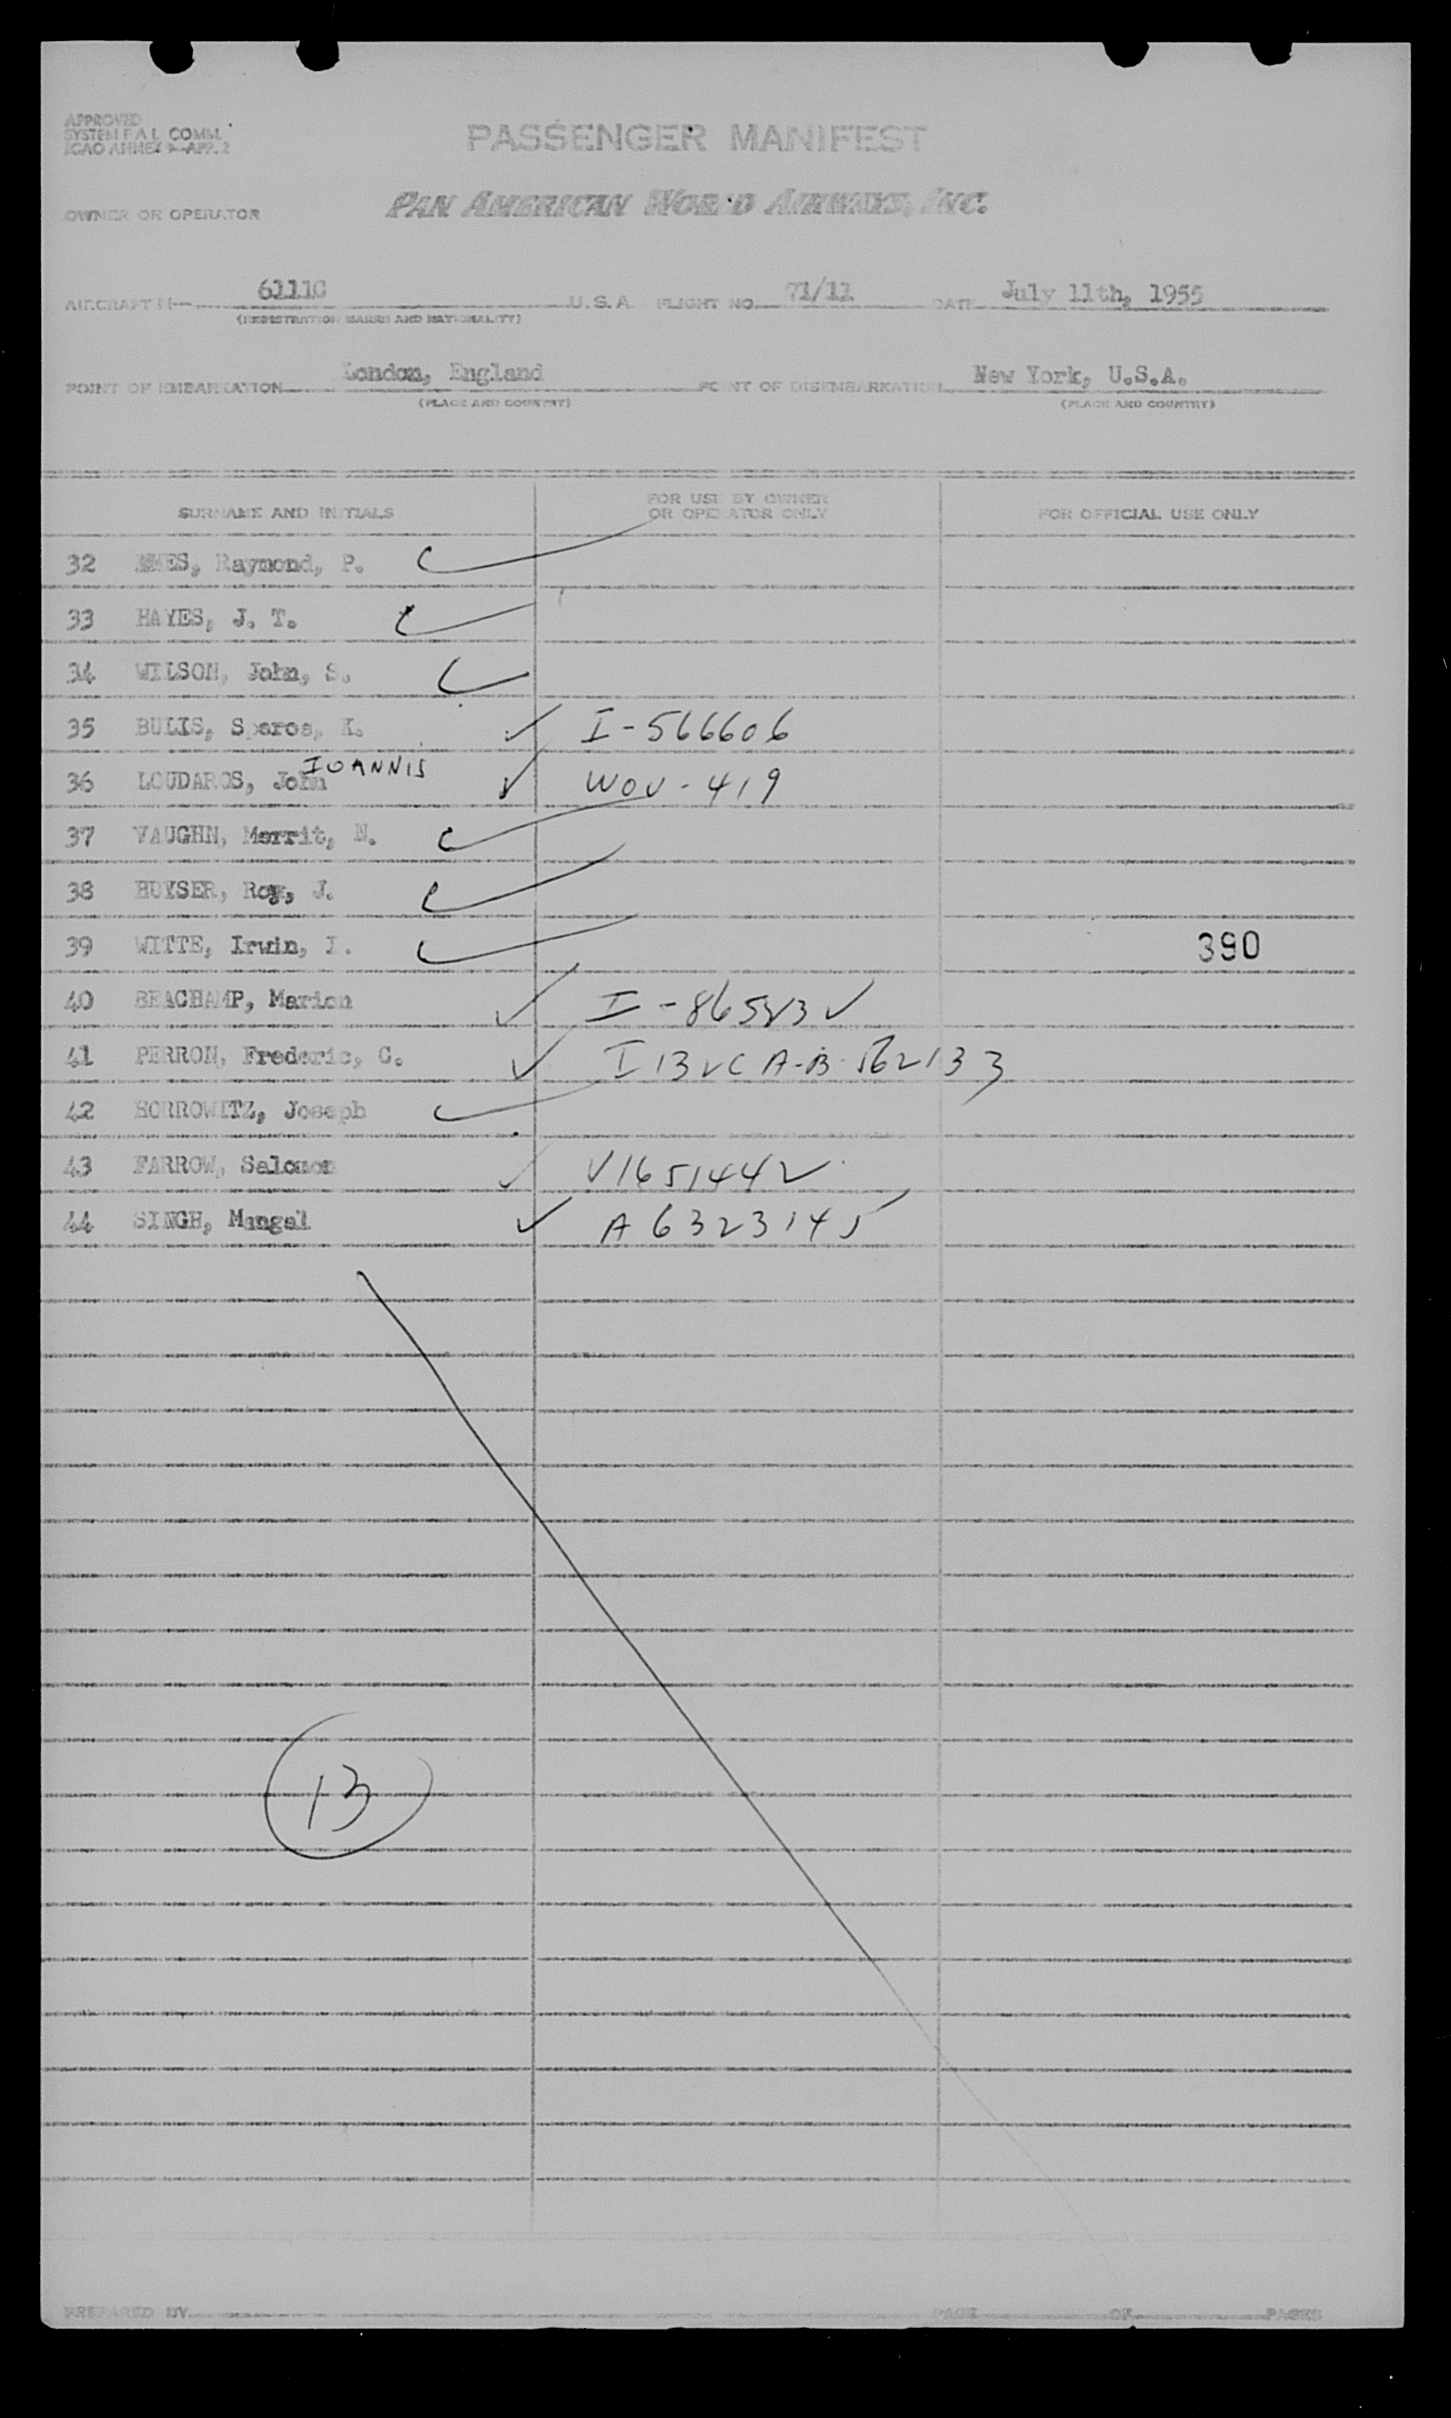 APPROVED
SYSTEM F.A.L. COMM.
ICAO ANNEX 9—APP. 2
PASSENGER MANIFEST
OWNER OR OPERATOR PAN AMERICAN WORLD AIRWAYS, INC.
AIRCRAFT N— 6111C U.S.A. FLIGHT NO. 71/11 DATE July 11th, 1955
(REGISTRATION MARKS AND NATIONALITY)
POINT OF EMBARKATION London, England POINT OF DISEMBARKATION New York, U.S.A.
(PLACE AND COUNTRY) (PLACE AND COUNTRY)
SURNAME AND INITIALS FOR USE BY OWNER OR OPERATOR ONLY FOR OFFICIAL USE ONLY
32 Raymond, P.
33 HAYES, J. T.
34 WILSON, John, S.
35 BULIS, K. I-566606
IOANNIS
36 LOUDAROS, John WOV-419
37 VAUGHN, Merrit, N.
38 Roy, J.
39 WITTE, Irwin, I. 390
40 BEACHAMP, Marion
41 PERRON, Frederic, C.
42 HORROWITZ, Joseph
43 FARROW, Salomon V1651442
44 SINGH, Mangal A6323145
13
PREPARED BY PAGE OF PAGES